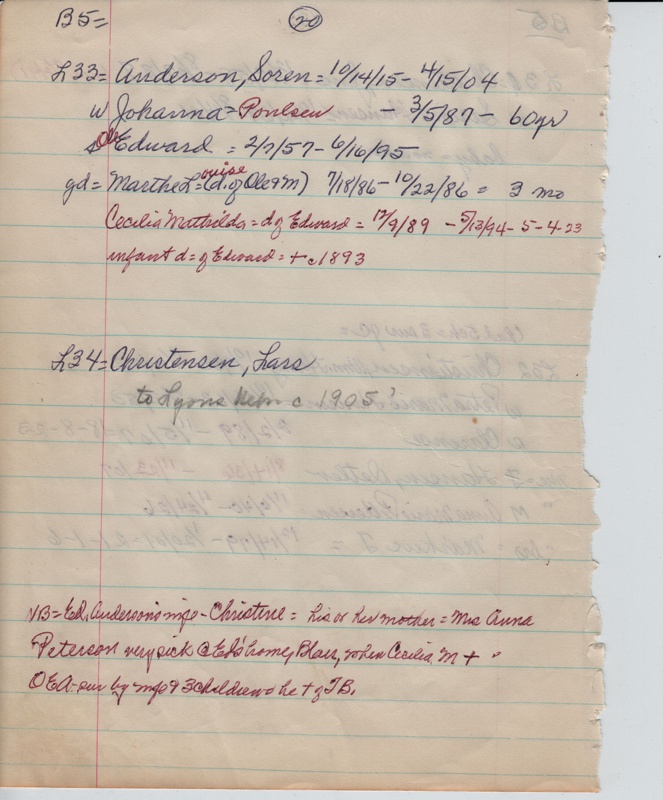 B5=
20
L33= Anderson, Soren = 10/14/15 - 4/15/04
w Johanna = Poulsen + 3/5/87 - 60yr
s Ole Edward = 2/7/57 - 6/16/95
gd = Marthe L = Louise (d. of Ole & M) 7/18/86 - 10/22/86 = 3 mo
Cecilia Mathilda = d of Edward = 12/9/89 - 5/13/94 - 5-4-23
infant d = of Edward = + c 1893
L34= Christensen, Lars
to Lyons Nebr c 1905?
NB = Ed. Anderson's wife - Christine = his or her mother = Mrs Anna
Peterson very sick @ Ed's home, Blair, when Cecilia M + "
OEA - sur by wife & 3 children - he + of TB.